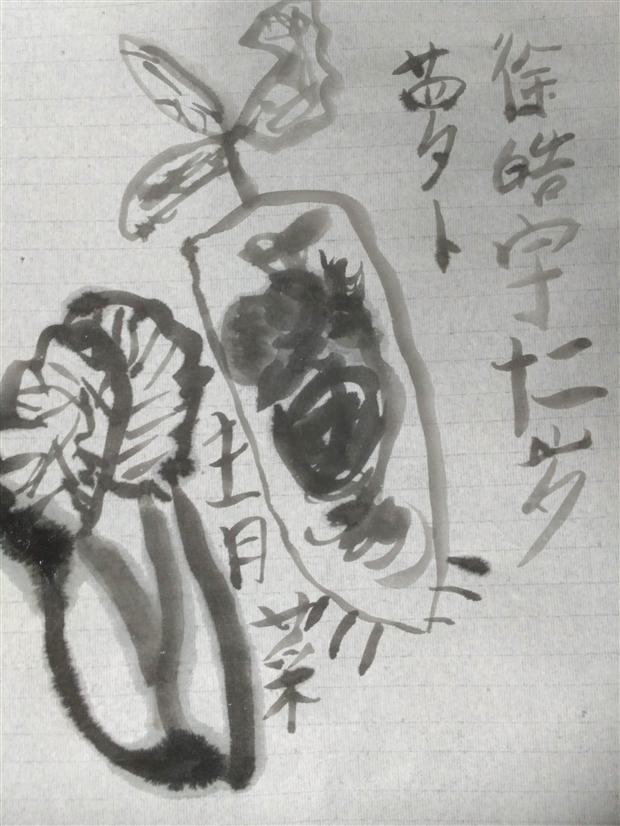 徐皓宇十二岁
萝卜
青菜